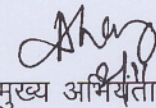 मुख्य अभियंता